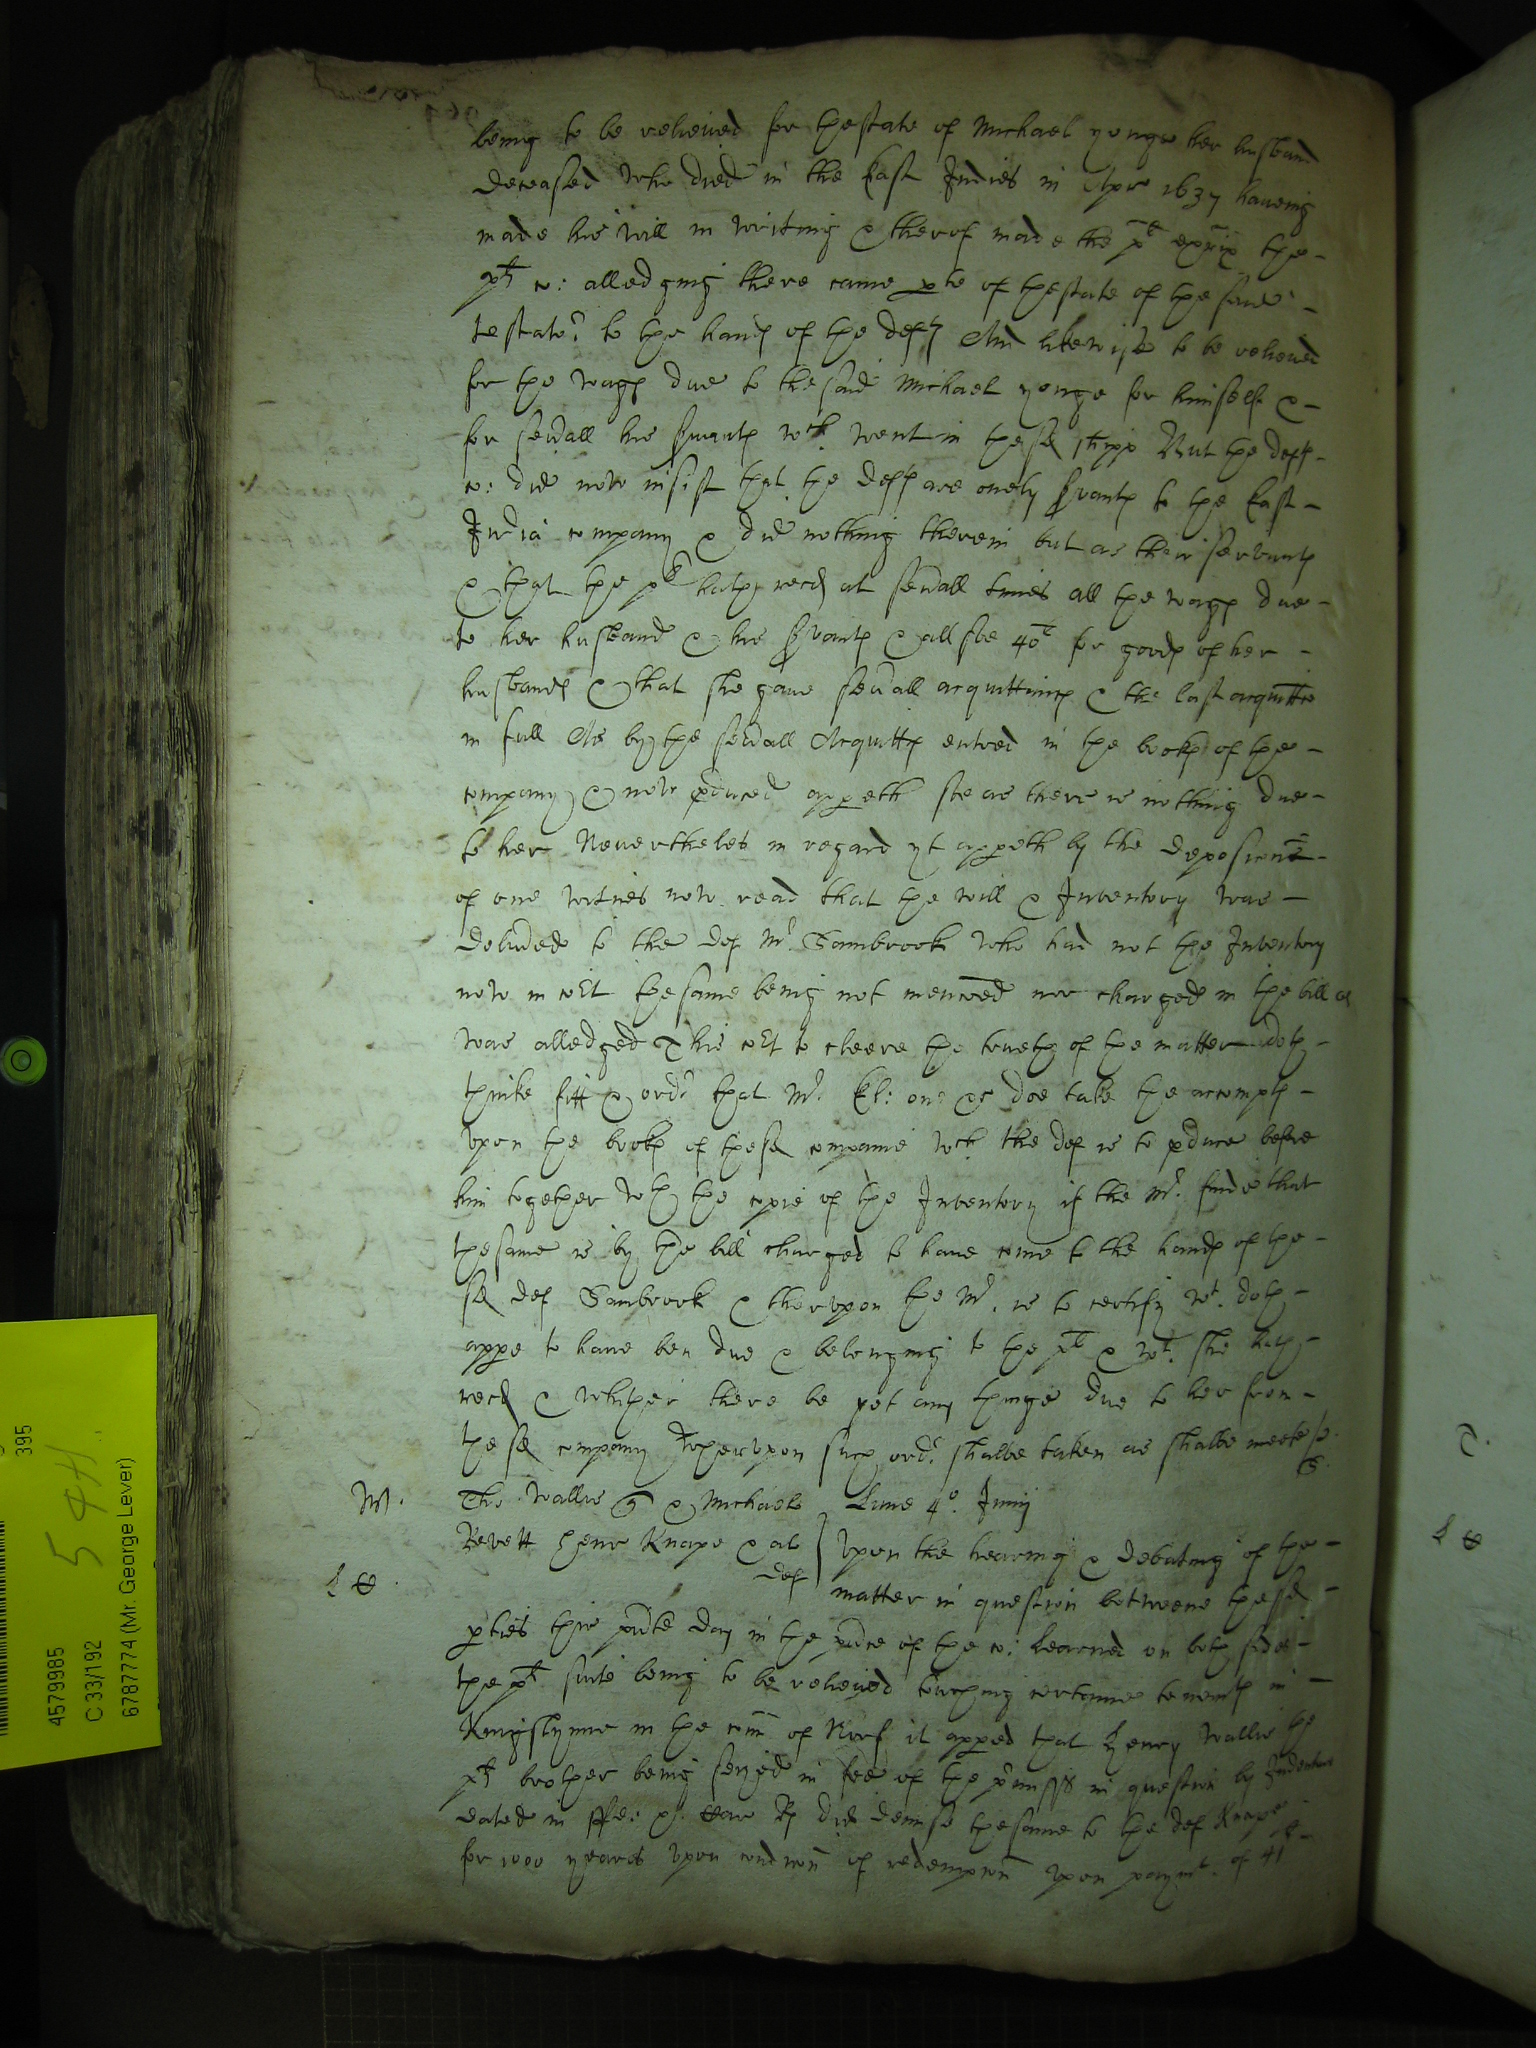 being to be relieued for thestate of Michael yonge her husband
deceased who died in the East Indies in Apr 1637 haueing
made his will in writing & therof made the plt exrix the
plts co: alledging there came pte of thestate of the said
testator to the hands of the defts And likewise to be relieued
for the wages due to the said Michael yonge for himself &
for seuall his servants wch went in the sd shipp But the defts
co: did now insist that the defts are onely servants to the East
India company & did nothing therein but as their servants
& that the plt hath recd at seuall times all the wages due
to her husband & his servants & allsoe 40l for goods of her
husbands & that she gaue seuall acquittances & the last acquittce
in full As by the seuall Acquittces entred in the books of the
company & now pduced appeth soe as there is nothing due
to her Neuertheles in regard yt appeth by the deposicons
of one witnes now read that the will & Inventory was
deliuded to the def Mr Sambrook who had not the Inventory
now in cort the same being not mencoed nor charged in the bill as
was alledged This cort to cleere the trueth of the matter doth
thinke fitt & ordr that Mr doe take the accompts
vpon the books of the sd companie wch the def is to pduce before
him together wth the copie of the Inventory if the Mr finde that
the same is by the bill charged to haue come to the hands of the
sd def Sambrook & thervpon the Mr is to certify wt doth
appe to haue ben due & belonging to the plt & wt she hath
recd & whither there be yet any thinge due to her from
the sd company Whervpon such ordr shalbe taken as shalbe meete
M. Tho: Wallis & Michaele Lune 4o Junij
Revett Henr Knape & al
def
Vpon the hearing & debating of the
matter in question betweene the sd
pties this pnte day in the pnce of the co: learned on both sides
the plts suite being to be relieued touching certaine tenemts in
Kingslynne in the com of Norf it apped that Henry Wallis the
plts brother being seized in fee of the pmisses in question by Indenture
dated in did demise the same to the def Knape
for 1000 years vpon condicon of redempcon vpon paymt of 41l
4579985
C 33/192
6787774 (Mr. George Lever)
395
544